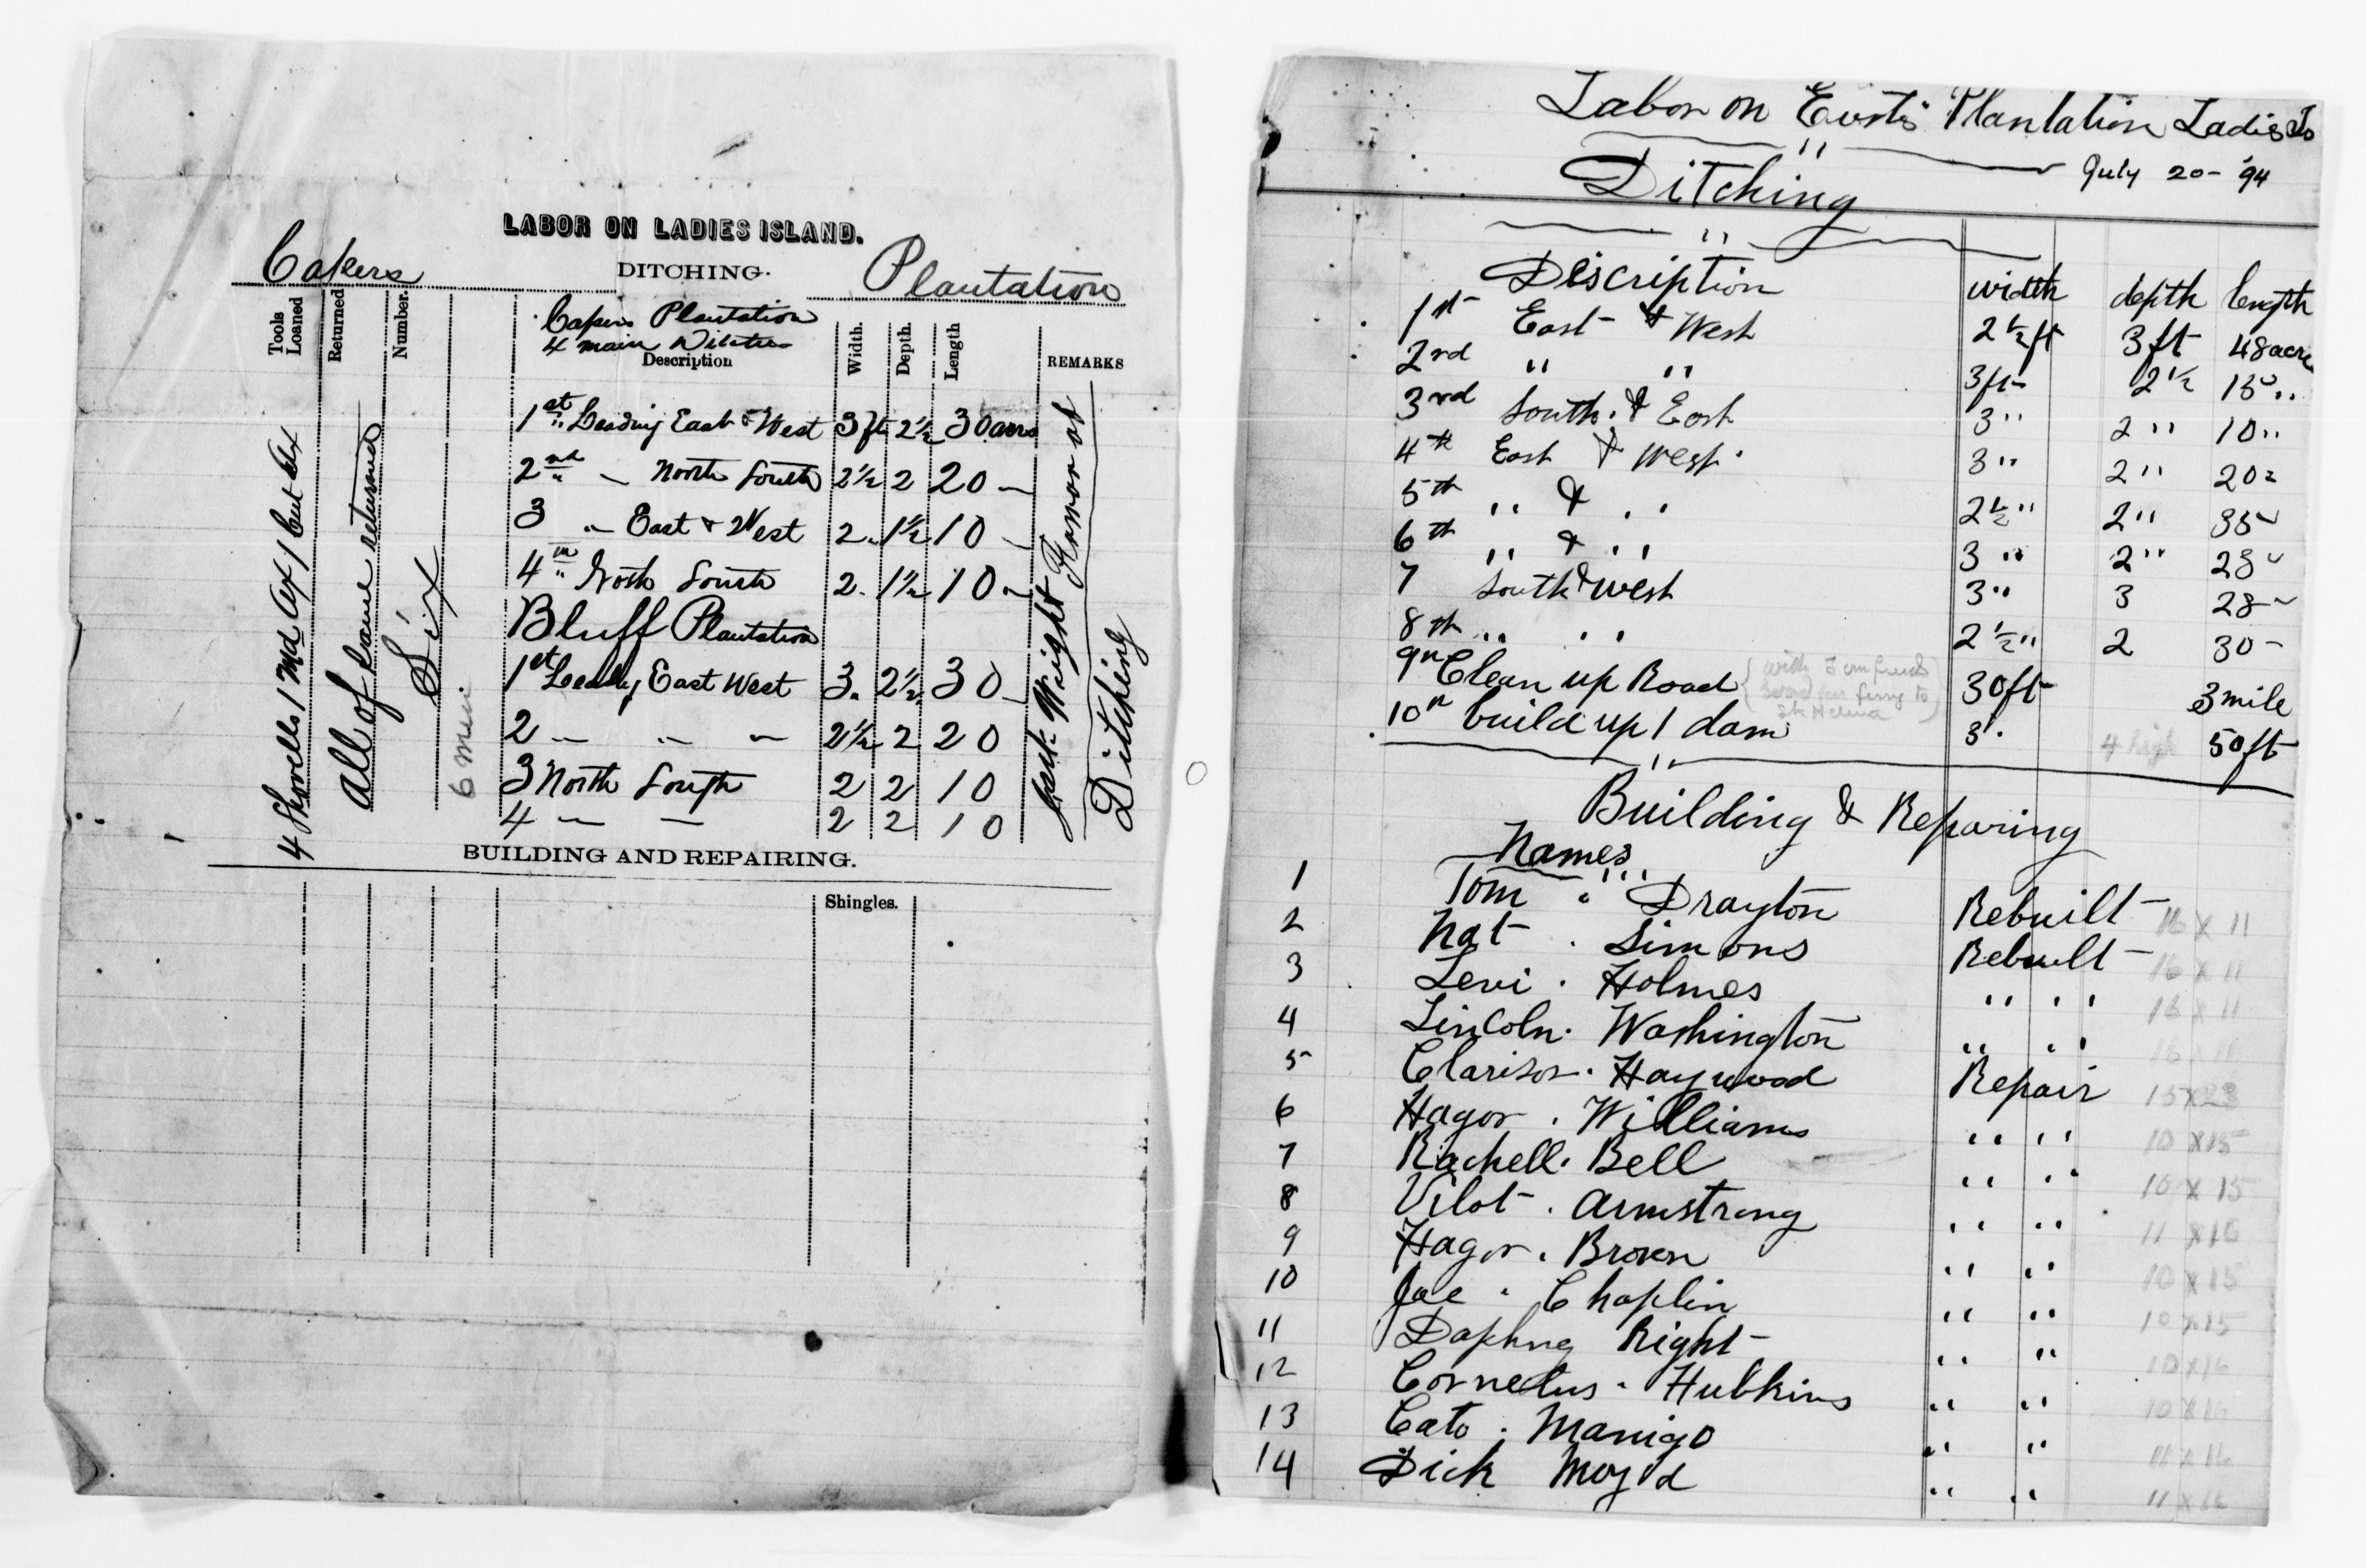 LABOR ON LADIES ISLAND.
DITCHING.
Capers Plantation
Tools Loaned
Returned
Number.
Capers Plantation
4 main Ditches
Description
Width.
Depth.
Length
REMARKS
4 Shovells 1 Md Ax 1 Cut Ax
All of Same returned
Six
6 men
1st " Leading East & West 3 ft 2½ 30 acres
2nd " — North South 2½ 2 20 —
3 " East & West 2 " 1½ 10 —
4th " North South 2 " 1½ 10 —
Bluff Plantation
1st Leading East West 3 " 2½ " 30 —
2 — " — 2½ 2 20
3 North South 2 2 10
4 — — 2 2 10
Ditching
BUILDING AND REPAIRING.
Shingles.
Labor on Eustis Plantation Ladies Is
"
July 20 - '94
Ditching
"
Description width depth length
1st East & West 2½ ft 3 ft 48 acre
2nd " " 3 ft 2½ 15 "
3rd South & East 3 " 2 " 10 "
4th East & West 3 " 2 " 20 "
5th " & " 2½ " 2 " 35 "
6th " & " 3 " 2 " 28 "
7 South & West 3 " 3 28 "
8th " " 2½ " 2 30 -
9th Clean up Road 30 ft 3 mile
ferry to
St Helena
10th build up 1 dam 3 ' 4 high 50 ft
"
Building & Reparing
Names
1 Tom " Drayton Rebuilt 16 x 11
2 Nat . Simons Rebuilt 16 x 11
3 Levi . Holmes " " 16 x 11
4 Lincoln . Washington " " 16 x 11
5 Clarisor . Haywood Repair 15 x 23
6 Hagor . Williams " " 10 x 15
7 Rachell . Bell " " 10 x 15
8 Vilot . Armstrong " " 11 x 16
9 Hagor . Brown " " 10 x 15
10 Joe . Chaplin " " 10 x 15
11 Daphney Right " " 10 x 16
12 Cornelus . Hubkins " " 10 x 16
13 Cato . Manigo " " 11 x 16
14 Dick Moyd " " 11 x 16